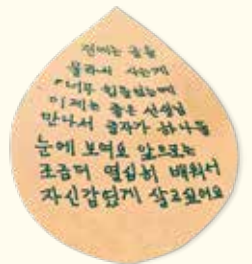 전에는 글을
몰라서 사는게
너무 힘들었는데
이제는 좋은 선생님
만나서 글자가 하나둘
눈에 보여요 앞으로는
조금더 열심히 배워서
자신감있게 살고싶어요